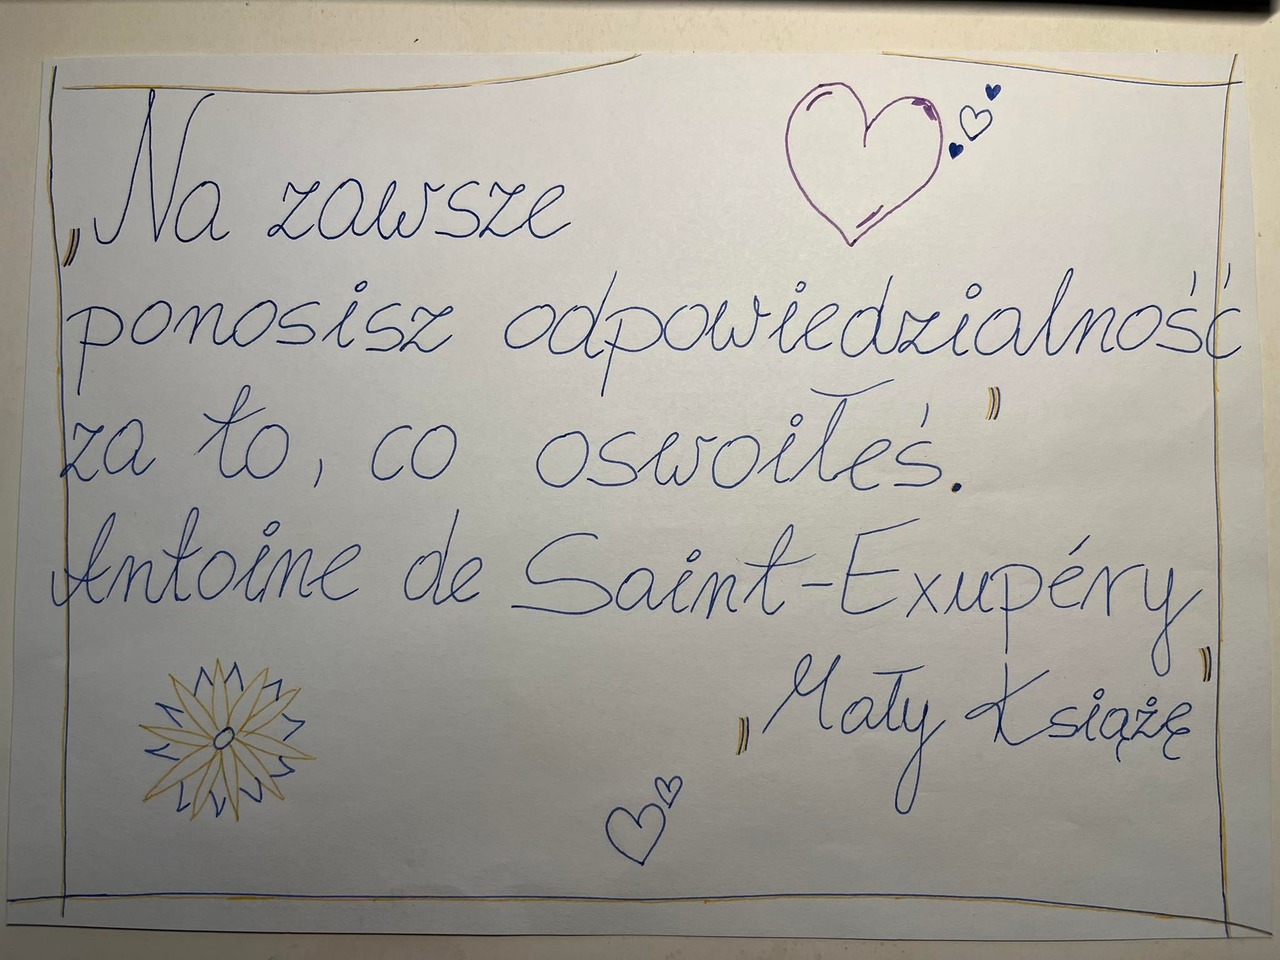 „Na zawsze
ponosisz odpowiedzialność
za to, co oswoiłeś."
Antoine de Saint-Exupéry
„Mały Książę"